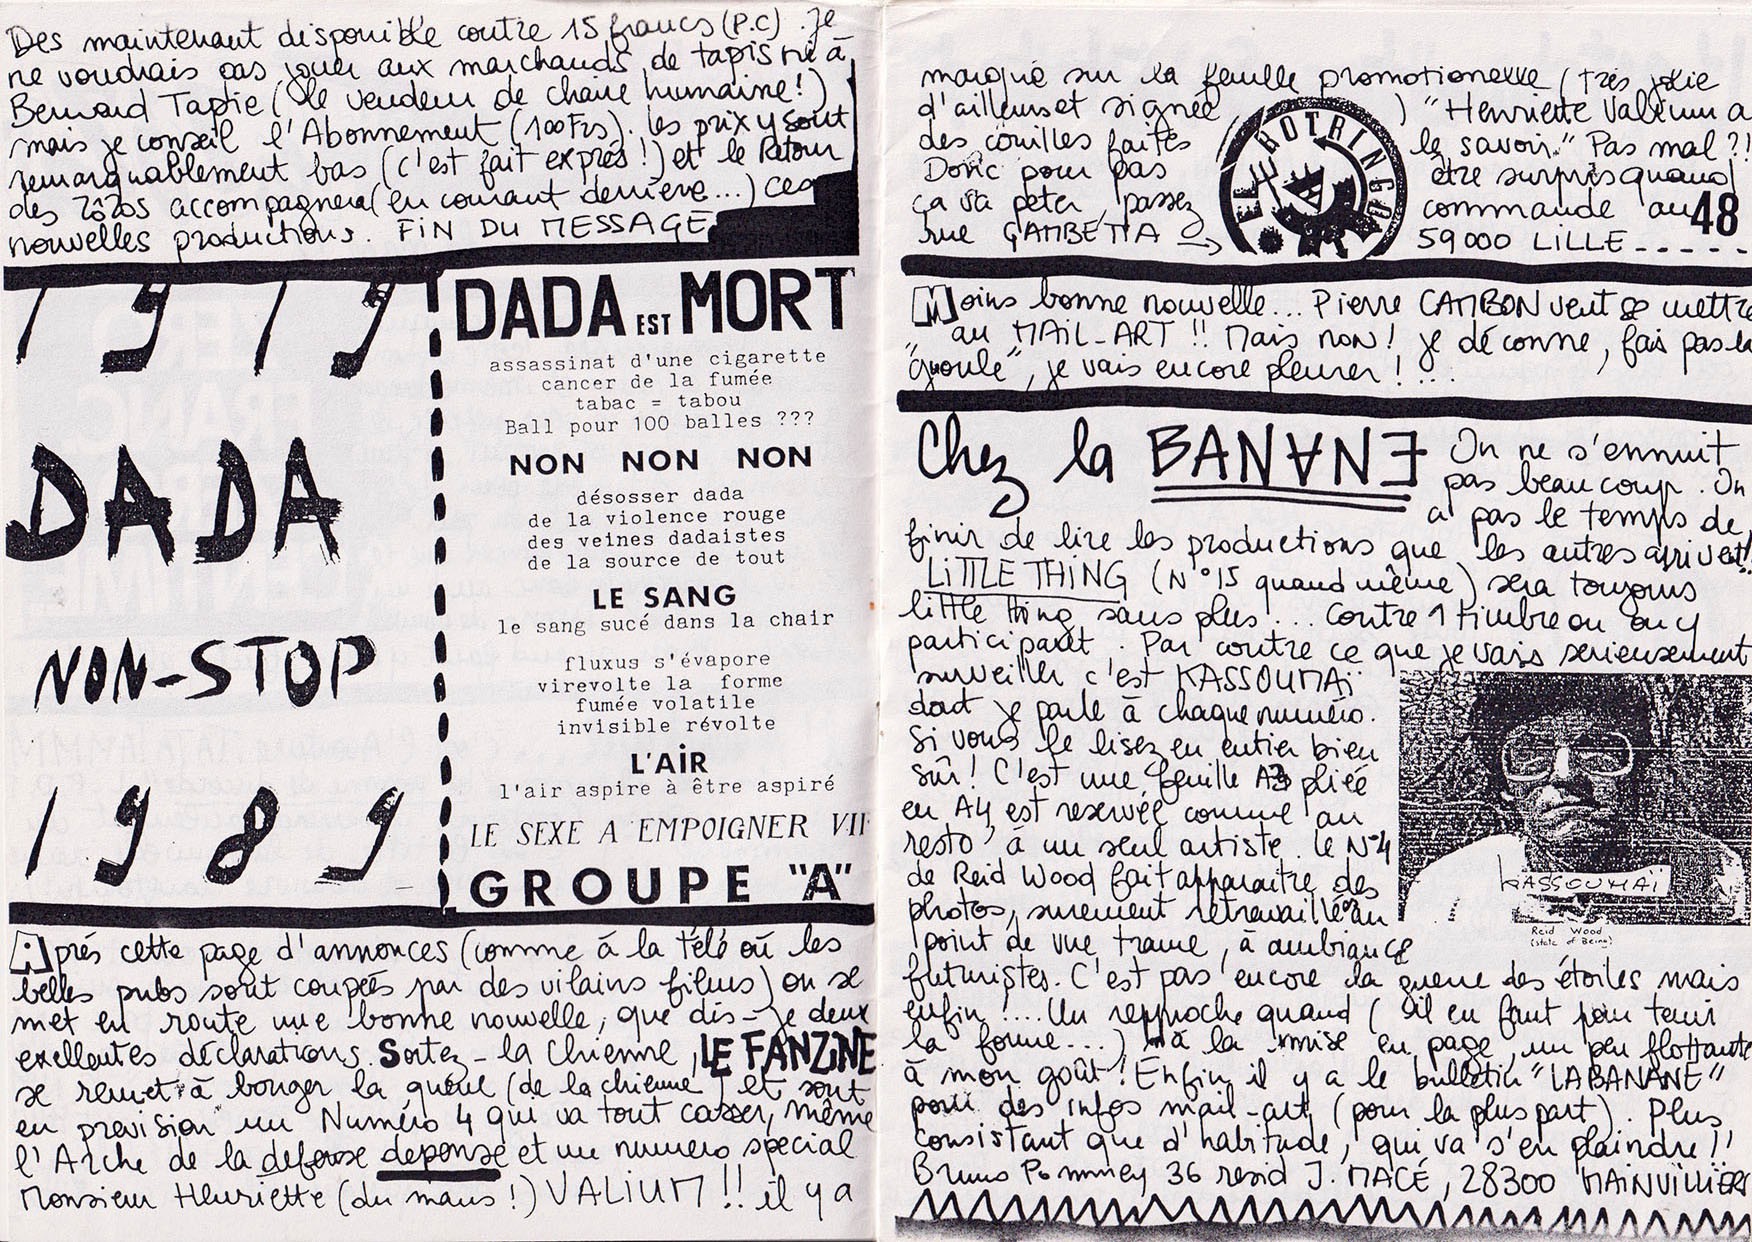 Des maintenant disponible contre 15 francs (P.C). Je
ne voudrais pas jouer aux marchands de tapis ni à
Bernard Tapie (le vendeur de chaire humaine!)
mais je conseil l'Abonnement (100Frs). les prix y sont
remarquablement bas (c'est fait exprés!) et le Retour
des Zôzos accompagnera (en courant derrière...) ces
nouvelles productions. FIN DU MESSAGE
1919
DADA
NON-STOP
1989
DADA EST MORT
assassinat d'une cigarette
cancer de la fumée
tabac = tabou
Ball pour 100 balles ???
NON NON NON
désosser dada
de la violence rouge
des veines dadaistes
de la source de tout
LE SANG
le sang sucé dans la chair
fluxus s'évapore
virevolte la forme
fumée volatile
invisible révolte
L'AiR
l'air aspire à être aspiré
LE SEXE A EMPOIGNER VIF
GROUPE "A"
Aprés cette page d'annonces (comme à la télé où les
belles pubs sont coupées par des vilains films) on se
met en route une bonne nouvelle, que dis-je deux
exellentes déclarations. Sortez-la Chienne, LE FANZINE
se remet à bouger la queue (de la chienne) et sont
en prevision un Numéro 4 qui va tout casser, même
l'Arche de la defense deponse et un numero special
Monsieur Henriette (du mans!) VALIUM!! il y a
marqué sur la feuille promotionelle (très jolie
d'ailleurs et signée ) "Henriette Valium a
des couilles faites le savoir." Pas mal ?!
Donc pour pas être surpris quand
ça va péter, passez commande au 48
rue GAMBETTA → 59000 LILLE-----
LA ROTRINGA
Moins bonne nouvelle... Pierre CAMBON veut se mettre
au MAiL-ART !! Mais non! je déconne, fais pas la
"gueule", je vais encore pleurer!...
Chez la BANANE On ne s'ennuit
pas beaucoup. On
a pas le temps de
finir de lire les productions que les autres arrivent!!
LiTTLE THiNG (N°15 quand même) sera toujours
little thing sans plus... contre 1 timbre ou en y
participant. Par contre ce que je vais serieusement
surveiller c'est KASSOUMAï
dont je parle à chaque numéro.
Si vous le lisez en entier bien
sûr! C'est une feuille A3 pliée
en A4, est reservée comme au
resto à un seul artiste. Le N°4
de Reid Wood fait apparaitre des
photos, surement retravaillé au
point de vue trame, à ambiance
futuristes. C'est pas encore la guerre des étoiles mais
enfin!... Un reproche quand (il en faut pour tenir
la forme...) à la mise en page, un peu flottante
à mon goût! Enfin il y a le bulletin "LA BANANE"
pour des infos mail-art (pour la plus part). Plus
consistant que d'habitude, qui va s'en plaindre!!
Bruno Pommey 36 resid J. MACÉ, 28300 MAiNViLLiERS
KASSOUMAï
Reid Wood
(state of Being)